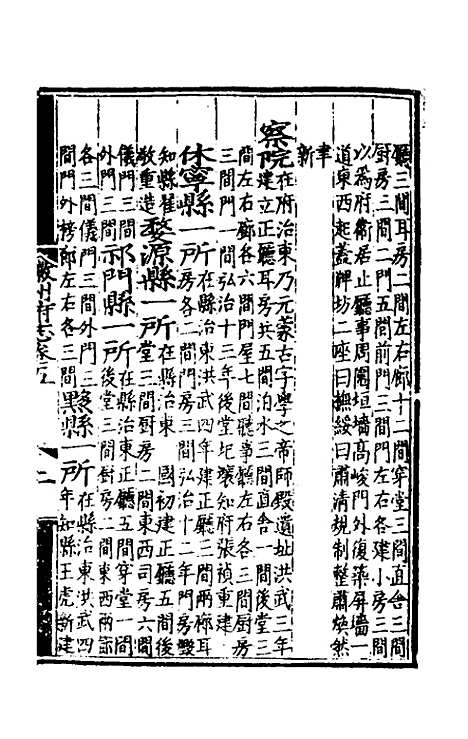 廳三間耳房二間左右廊十二間穿堂三間直舎三間
厨房三間二門五間前門三間門左右各建小房三間
以為府衛居止廳事周圍垣墻高峻門外復築屏墻一
道東西起蓋牌坊二座曰撫綏曰肅清規制整肅煥然
新
察院在府治東乃元蒙古字學之帝師殿遺址洪武三年
建立正廳耳房共五間泊水三間直舎一間後堂三
間左右廊各六間門屋七間聽事廳左右各三間厨房
三間門一間弘治十三年後堂圮壞知府張禎重建
休寧縣一所在縣治東洪武四年建正廳三間兩廊耳
房各二間門房三間弘治十二年門房毀
知縣翟敬重造婺源縣一所在縣治東國初建正廳五間後
堂三間厨房二間東西司房六間
儀門三間外門三間祁門縣一所在縣治東正廳五間穿堂一間
後堂三間厨房二間東西兩
各三間儀門三間外門三間門外榜郎左右各三間黟縣一所在縣治東洪武四
年知縣王虎新建
徽州府志卷五
二